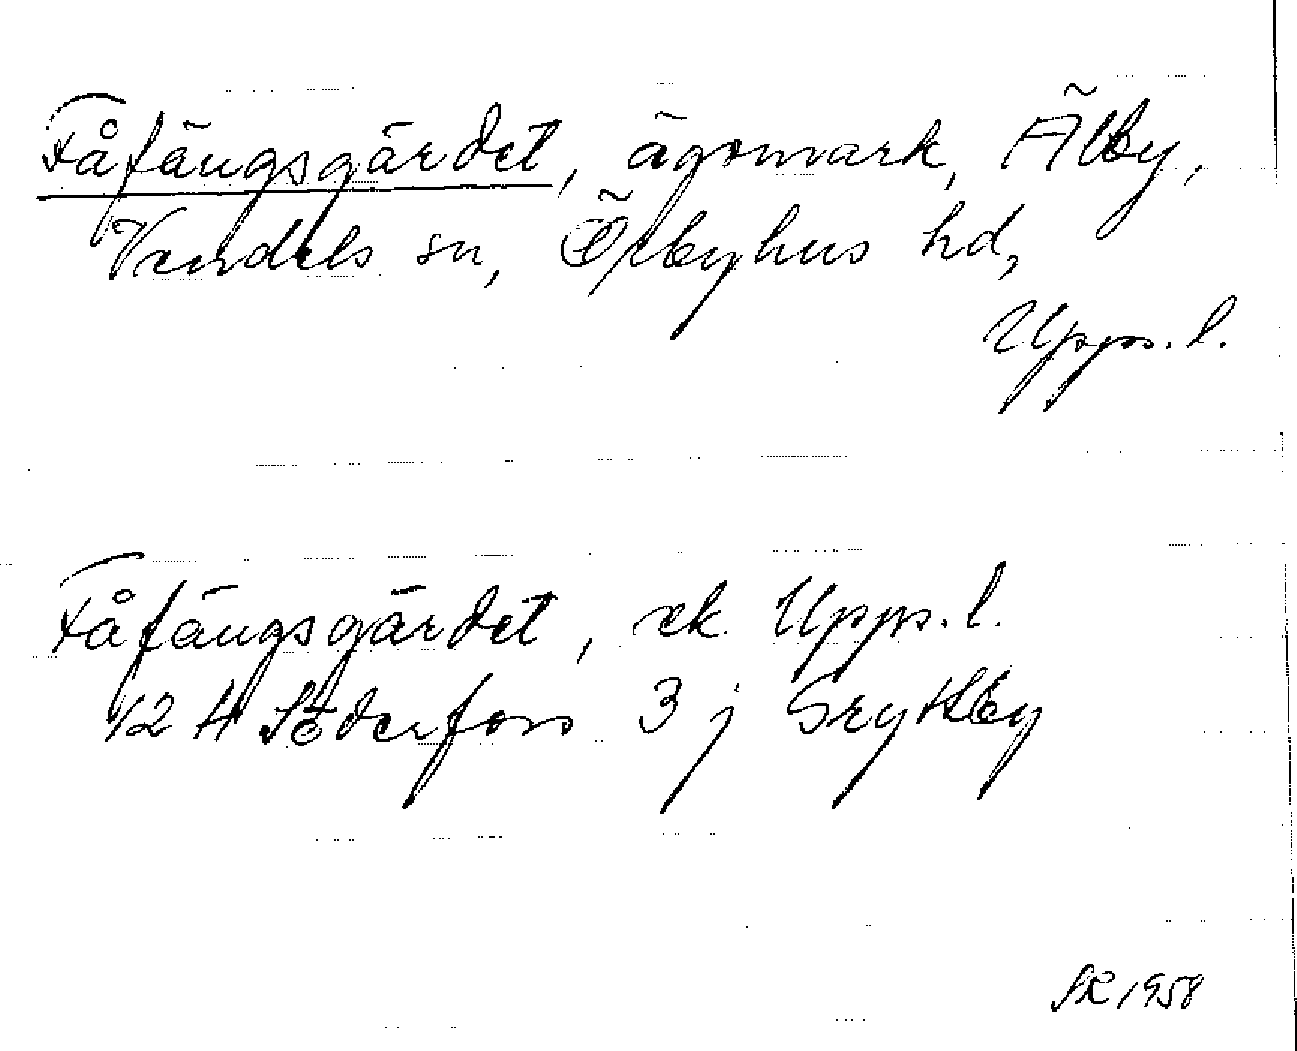 Fåfängsgärdet, ägomark, Älby,
Vendels sn, Örbyhus hd,
Upps. l.
Fåfängsgärdet, ek. Upps. l.
12 H Söderfors 3 j Gryttby
SR 1958